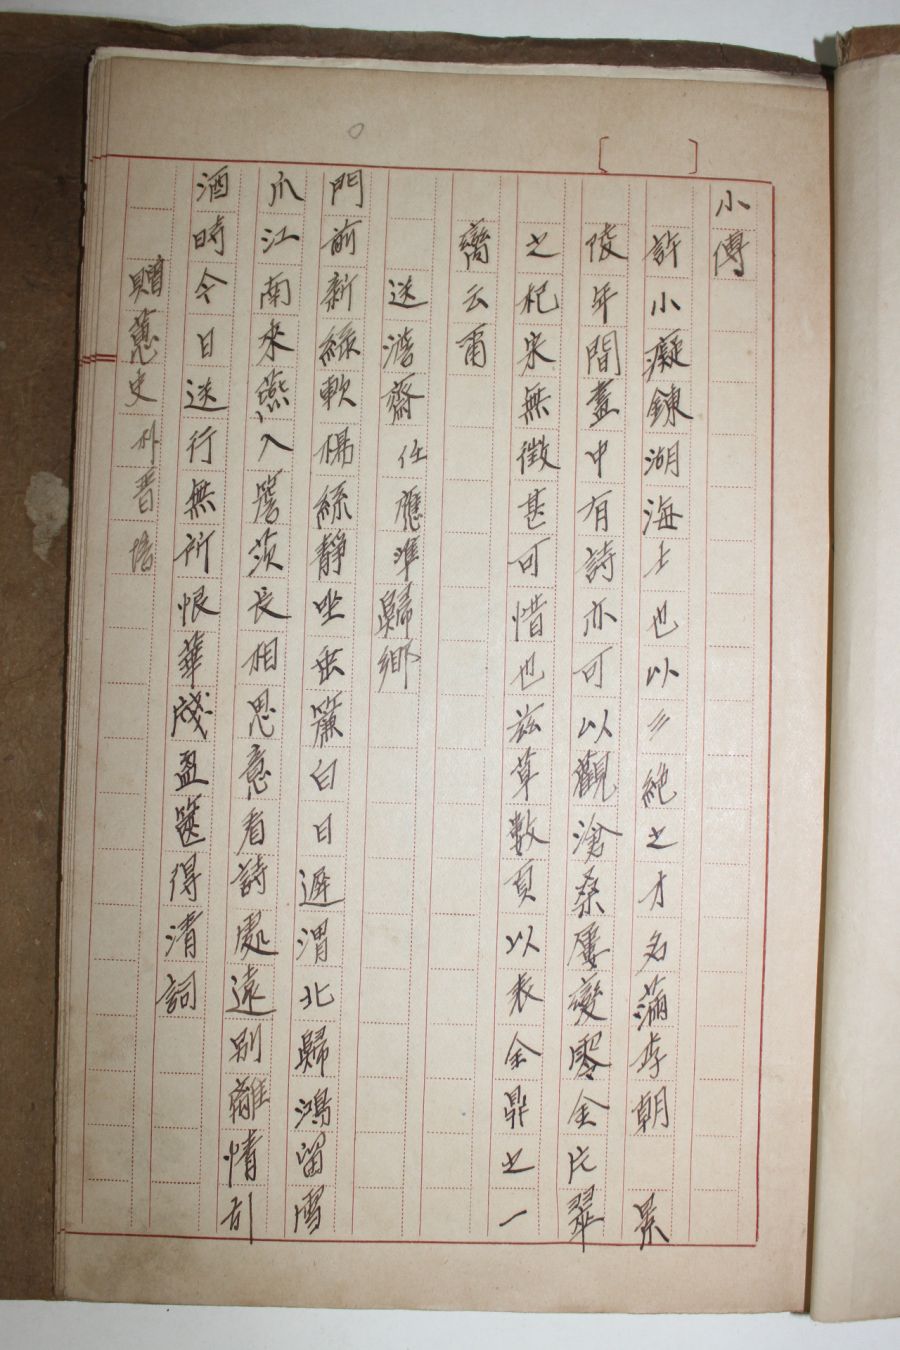 小傳
許小癡鍊湖海士也以彡絶之才名滿李朝 景
陵年間畫中有詩亦可以觀滄桑屢變零金片翠
之杞宋無徵甚可惜也玆草數頁以表全鼎之一
臠云爾
送澹齋任應準歸鄕
門前新綠軟楊絲靜坐虫簾白日遲渭北歸鴻留雪
爪江南來燕入簷茨長相思意看詩處遠別離情引
酒時今日送行無所恨華牋盈篋得淸詞
贈蕙史朴晋